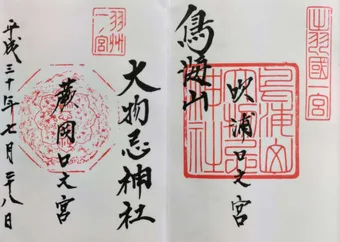 出羽國一宮
鳥海山
吹浦口之宮
大物忌神社
羽州
一宮
蕨岡口之宮
平成三十年七月二十八日